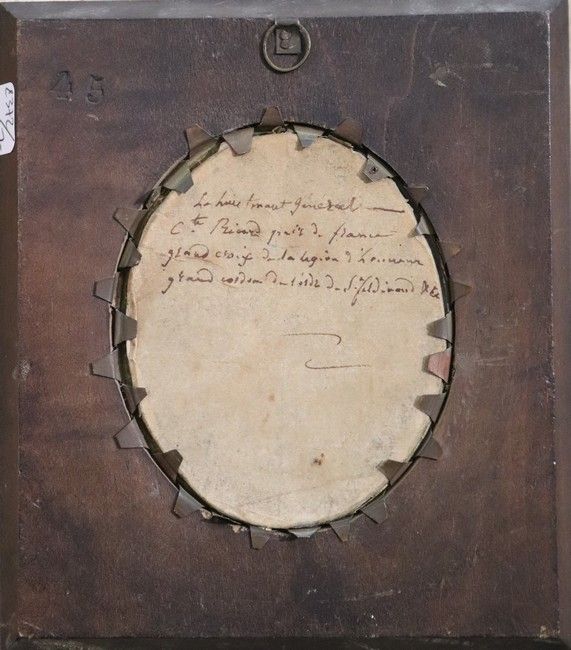 45
Le lieutenant général
C.te Ricard pair de france
grand croix de la legion d'honneur
grand cordon de l'ordre de St ferdinand &c